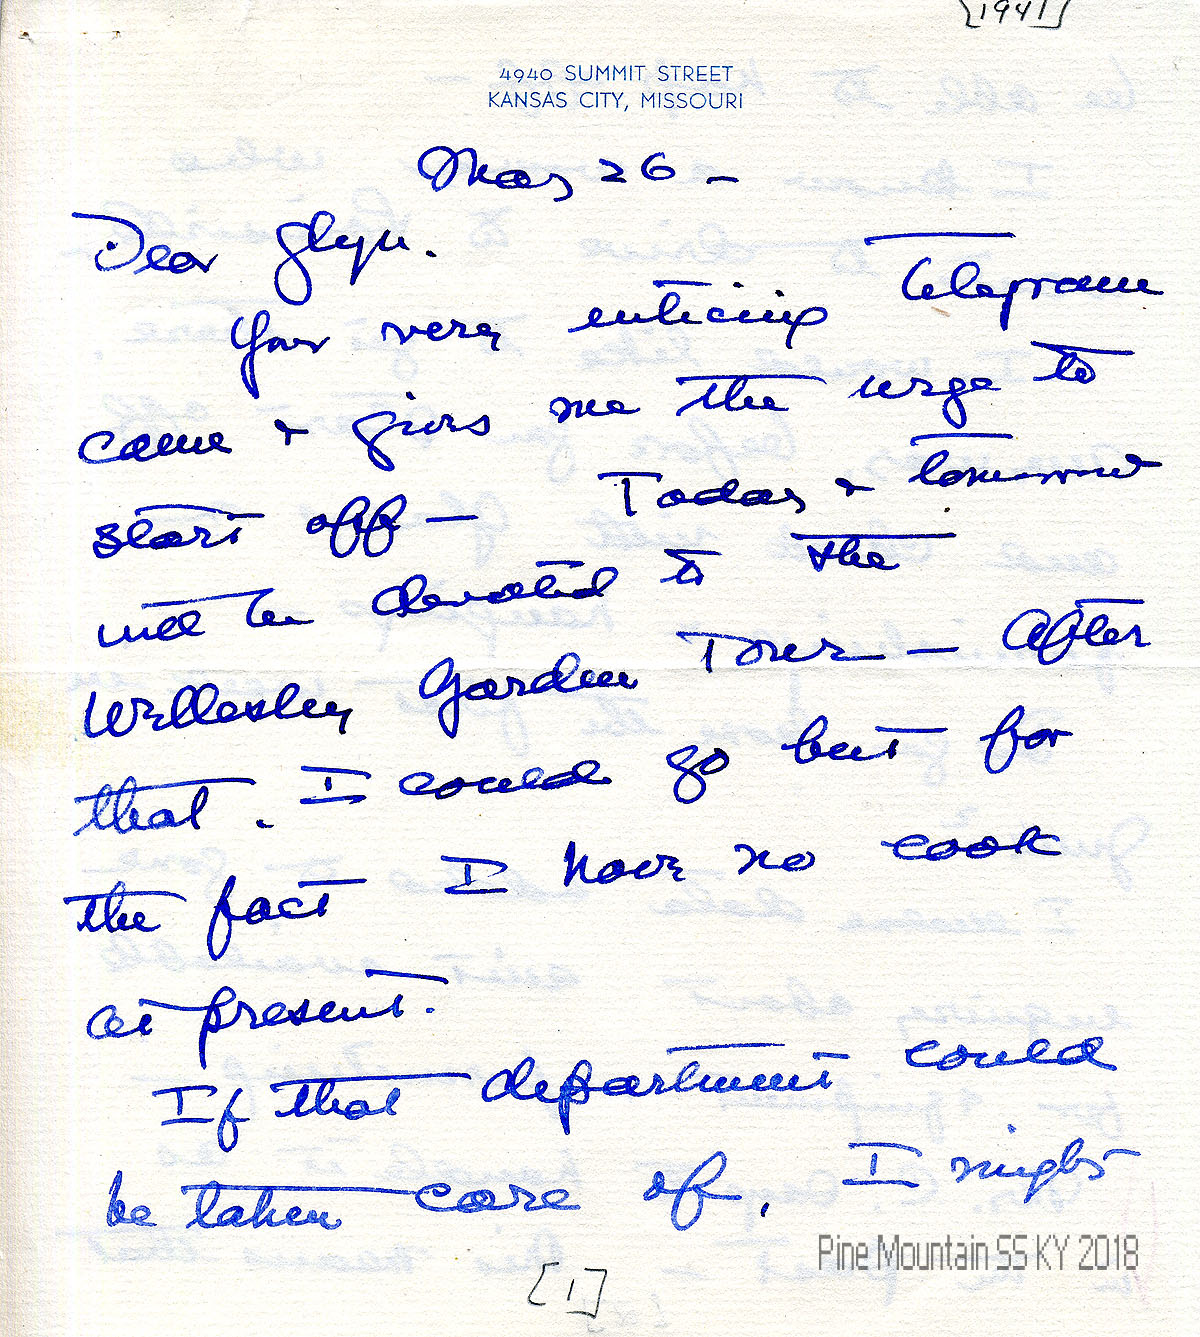 [1941]
4940 SUMMIT STREET
KANSAS CITY, MISSOURI
May 26 –
Dear Glyn.
Your very enticing telegram
came & gives me the urge to
start off – Today & tomorrow
will be devoted to the
Wellesley Garden Tour – After
that. I could go but for
the fact I have no cook
at present.
If that department could
be taken care of, I might
Pine Mountain SS KY 2018
[1]